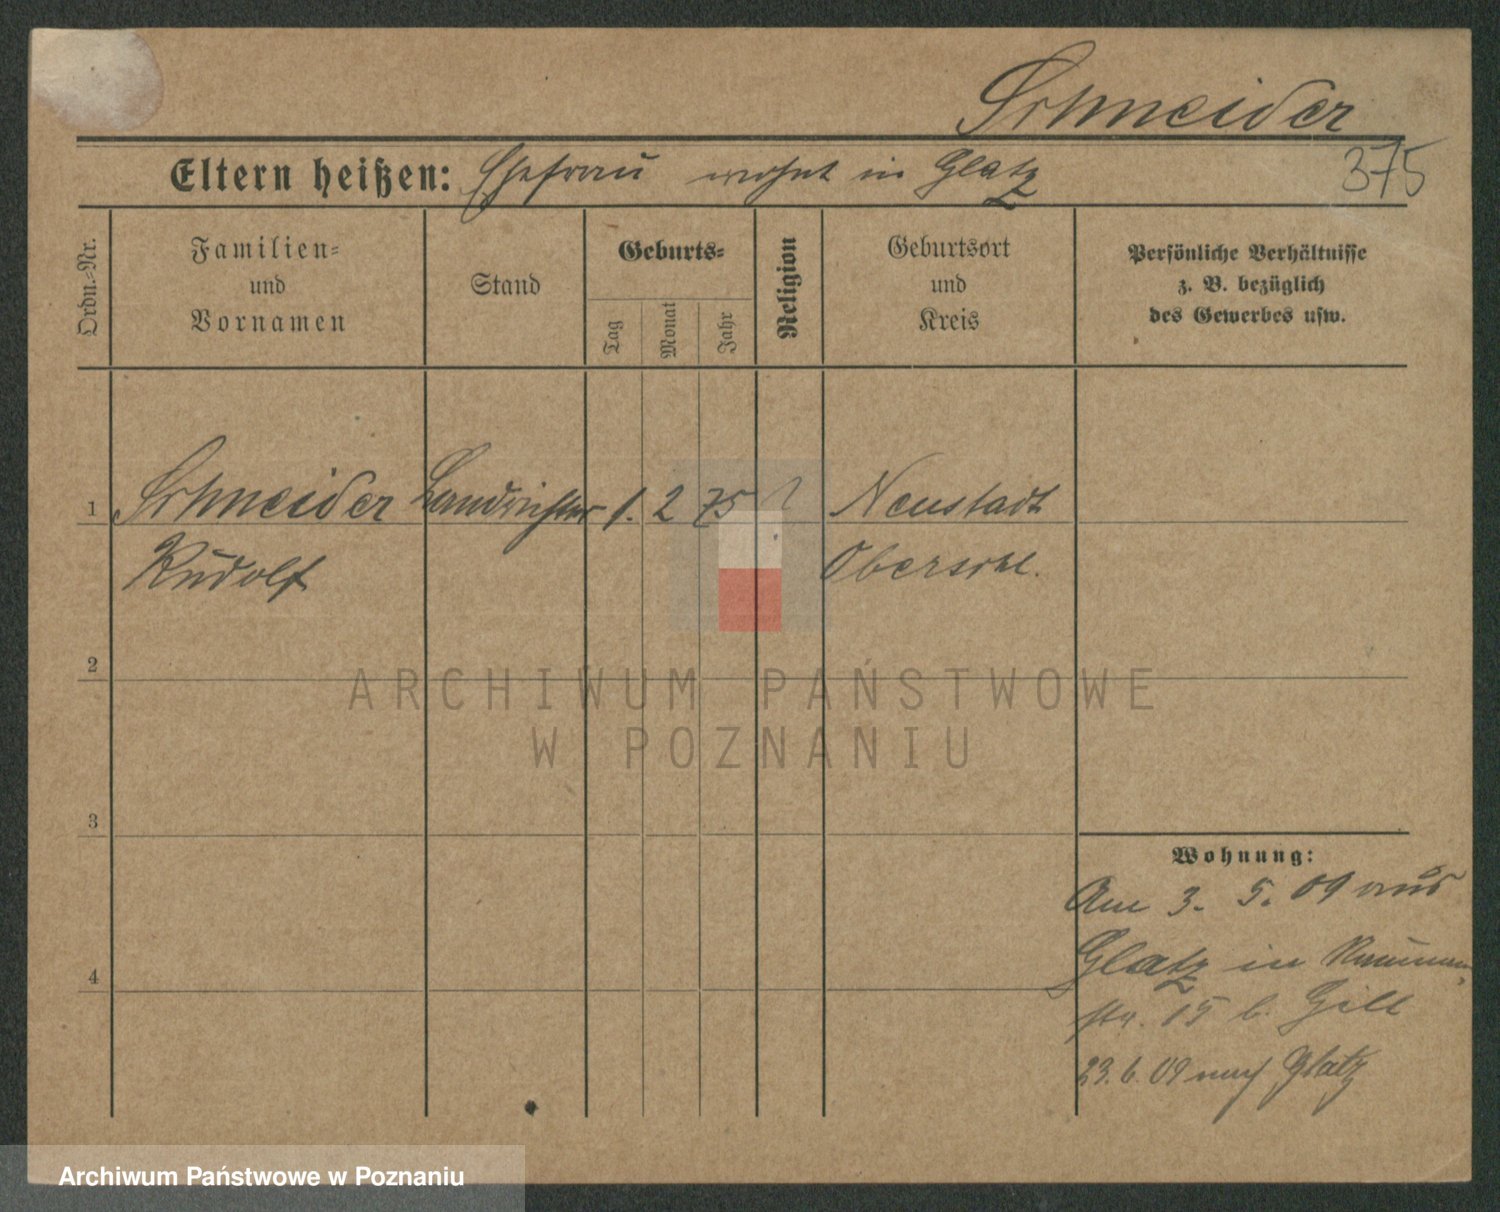 Schneider
375
Eltern heißen: Ehefrau wohnt in Glatz
Ordn.-Nr.
Familien-
und
Vornamen
Stand
Geburts-
Tag
Monat
Jahr
Religion
Geburtsort
und
Kreis
Persönliche Verhältnisse
z. B. bezüglich
des Gewerbes usw.
1 Schneider Landrichter 1. 2 75 ? Neustadt
Rudolf Oberschl.
2
ARCHIWUM PAŃSTWOWE
W POZNANIU
3
Wohnung:
Am 3. 5. 09 aus
4
Glatz in Naumann
str. 15 b. Gill
23. 6. 09 nach Glatz
Archiwum Państwowe w Poznaniu